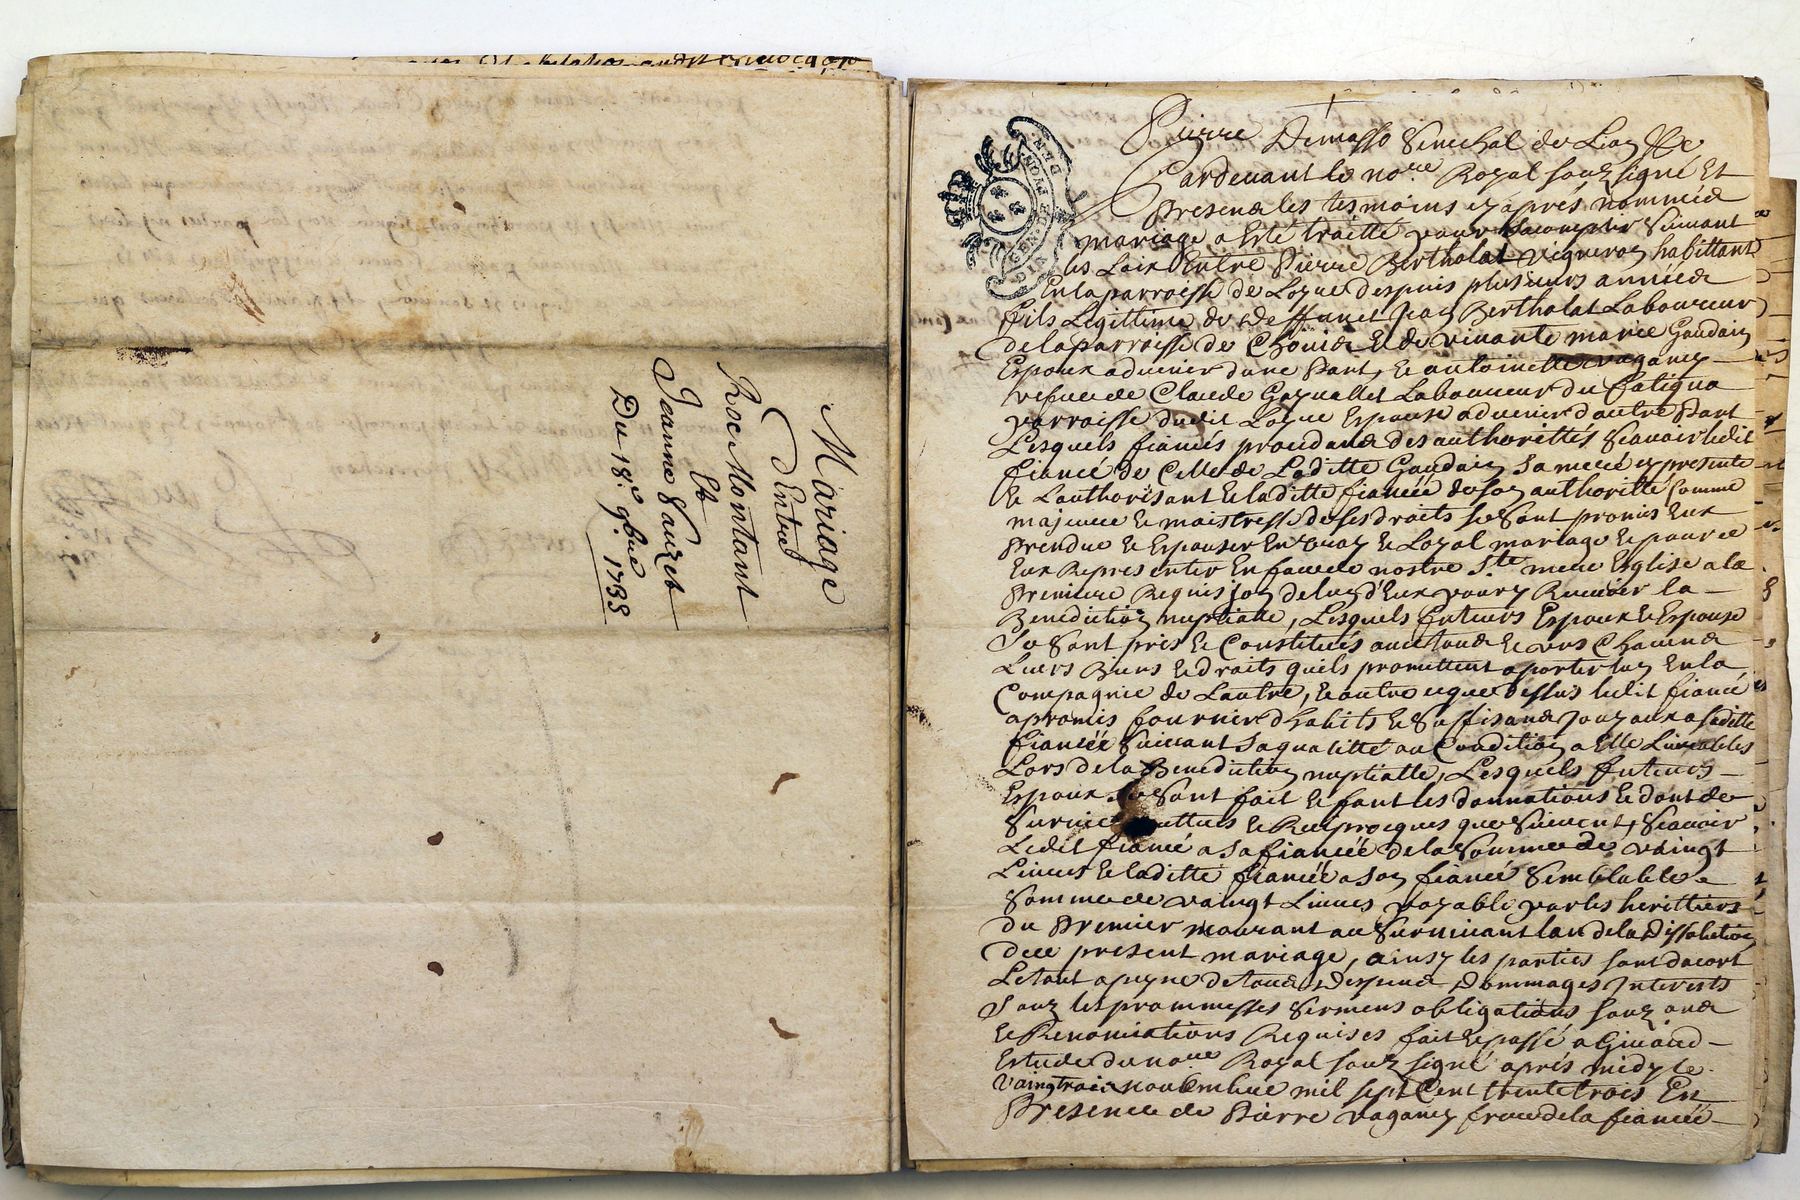 Mariage
Entre
Roc Montant
Et
Jeanne Sauzet
Du 18e 9bre 1733
GEN. DE LYON
Pierre Demasso Senechal de Lion
Pardevant le nore Royal souz signé Et
Presendes les tesmoins cy aprés nommés
mariage a Esté traitté pour suivant
les Loix Entre Pierre Bertholat vigneron habittant
En la parroisse de Logue despuis plusieurs années
fils Legittime de deffunct Jean Bertholat Laboureur
de la parroisse de Et de vivante marie Gaudain
Espoux advenir dune Part, Et antoinette vaganey
vefve de Claude Laboureur du
parroisse dudit Espouse advenir dautre Part
Lesquels fiancés procedand des authorittés Scavoir ledit
fiancé de Celle de Laditte Gaudain Sa mere cy presente
Et Lauthorisant Et laditte fiancée de son authoritté Comme
majeure Et maistresse de ses droits se sont promis Eux
Prendre Et Espouser En vray Et Loyal mariage Et pour ce
Eux Representer En face de nostre Ste mere Eglise a la
Premiere Requision de lun d'Eux pour y Recevoir la
Benediction nuptialle, Lesquels futeurs Espoux Et Espouse
Se Sont pris Et Constitués avec tous Et uns Chacuns
Leurs Biens Et droits quils promettent aporter En la
Compagnie de Lautre, Et outre ce que dessus ledit fiancé
a promis fournir d'habits Et Suffisand Jouyaux a saditte
fiancée Suivant Sa qualitté ou Condition a Elle Livrables
Lors de la Benediction nuptialle, Lesquels futeurs
Espoux Se Sont fait Et font les donnations Et dont de
Survie Et Reciproques que Suivent, Scavoir
Ledit fiancé a Sa fiancée de la Somme de vaingt
Livres Et laditte fiancée a Son fiancé Semblable
Somme de vaingt Livres payable par les herittiers
du Premier mourant au Survivant lors de la Dissolution
de ce present mariage, ainsy les parties sont dacort
Letout a peyne de tous, despend, dommages Interests
Souz les prommesses Sermens obligations souz
Et Renonciations Requises fait Et passé a
Estude du nore Royal souz signé aprés midy le
vaingtrois novembre mil sept Cent trente trois En
Presence de Pierre vaganey frere de la fiancée